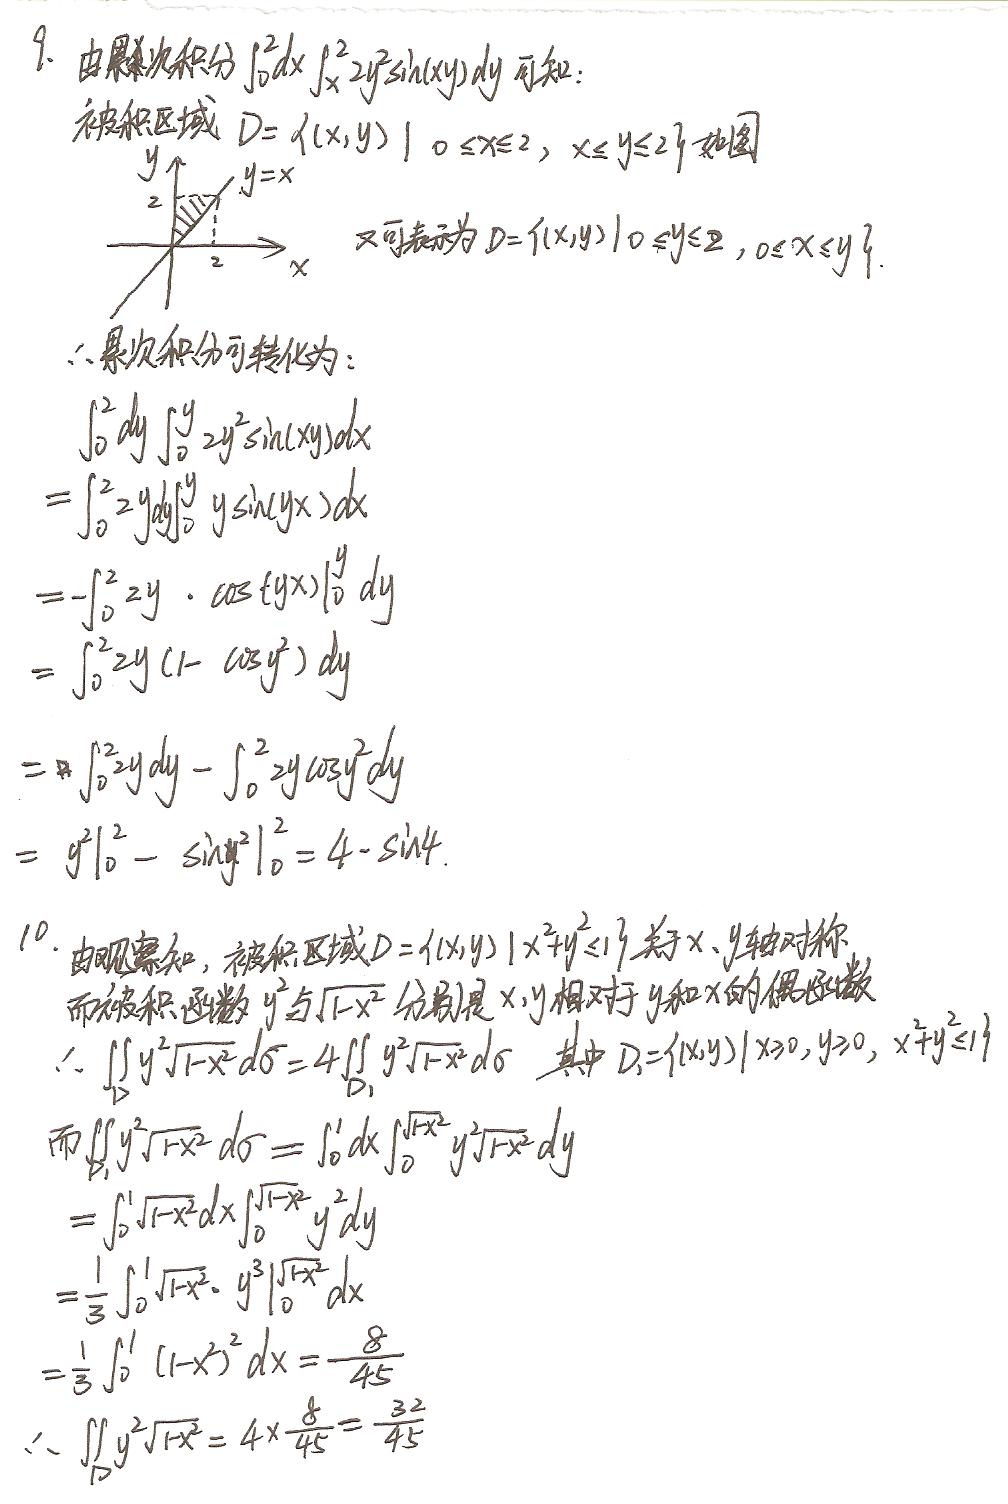 9. 由累次积分 ∫₀² dx ∫ₓ² 2y²sin(xy)dy 可知:
被积区域 D={(x,y) | 0≤x≤2, x≤y≤2} 如图
y
y=x
2
2
x
又可表示为 D={(x,y) | 0≤y≤2, 0≤x≤y}.
∴累次积分可转化为:
∫₀² dy ∫₀^y 2y²sin(xy)dx
= ∫₀² 2ydy∫₀^y ysin(yx)dx
= -∫₀² 2y · cos(yx)|₀^y dy
= ∫₀² 2y(1- cosy²) dy
= ∫₀² 2ydy - ∫₀² 2ycosy²dy
= y²|₀² - siny²|₀² = 4-sin4.
10. 由观察知, 被积区域D={(x,y) | x²+y²≤1} 关于x、y轴对称
而被积函数 y²与√(1-x²) 分别是x,y相对于y和x的偶函数
∴ ∬_D y²√(1-x²) dσ=4∬_D₁ y²√(1-x²) dσ 其中 D₁={(x,y) | x≥0, y≥0, x²+y²≤1}
而∬_D₁ y²√(1-x²) dσ = ∫₀¹ dx∫₀^√(1-x²) y²√(1-x²) dy
= ∫₀¹ √(1-x²) dx∫₀^√(1-x²) y²dy
= 1/3 ∫₀¹ √(1-x²) · y³|₀^√(1-x²) dx
= 1/3 ∫₀¹ (1-x²)² dx = 8/45
∴ ∬_D y²√(1-x²) = 4× 8/45 = 32/45